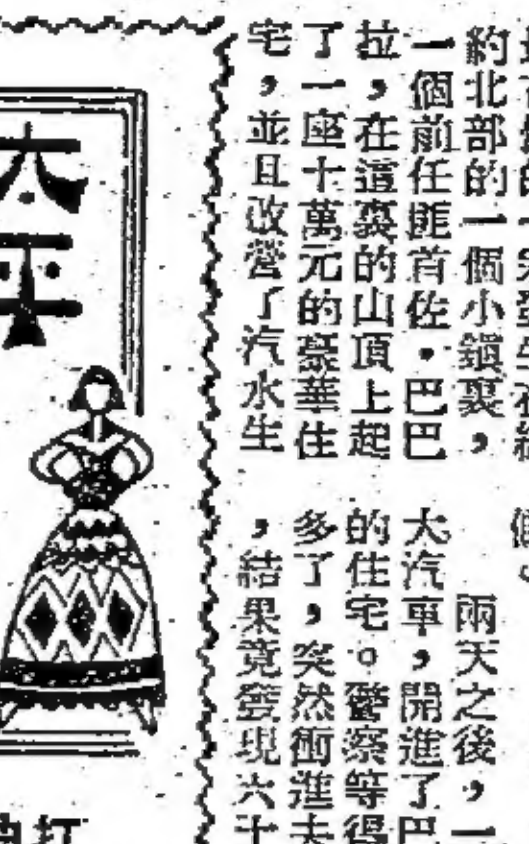 約北部的一個小鎮裏，
一個前任匪首佐・巴巴
拉，在這裏的山頂上起
了一座十萬元的豪華住
宅，並且改營了汽水生
兩天之後，一
大汽車，開進了巴
的住宅。警察等得
多了，突然衝進去
，結果竟發現六十
太平